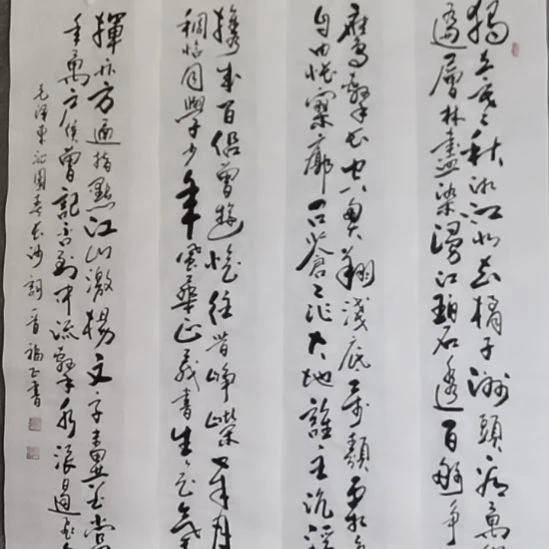 獨立寒秋湘江北去橘子洲頭看萬
遍層林盡染漫江碧透百舸爭
鷹擊長空魚翔淺底萬類霜
自由悵寥廓问蒼茫大地誰主沉浮
攜来百侶曾遊憶往昔崢嶸歲月
稠恰同學少年風華正茂書生意氣
揮斥方遒指點江山激揚文字糞土當
年萬户侯曾記否到中流擊水浪遏飛
毛澤東沁園春長沙詞一首福書